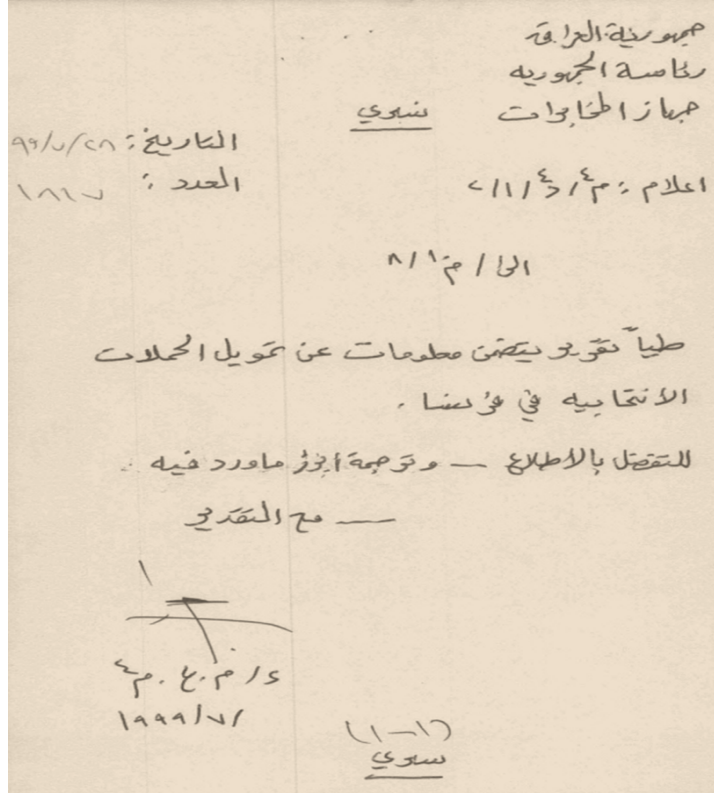 جمهورية العراق
رئاسة الجمهوريه
جهاز المخابرات
سري
التاريخ : ٩٩/٧/٢٨
العدد : ١٨١٧
اعلام : م٤/د٤/١/٢
الى / م١/٨
طياً تقرير يتضمن معلومات عن تمويل الحملات
الانتخابيه في فرنسا .
للتفضل بالاطلاع — وترجمة ابرز ماورد فيه .
— مع التقدير
م.ع.م٤
/١٩٩٩/٧
(١-١)
سري